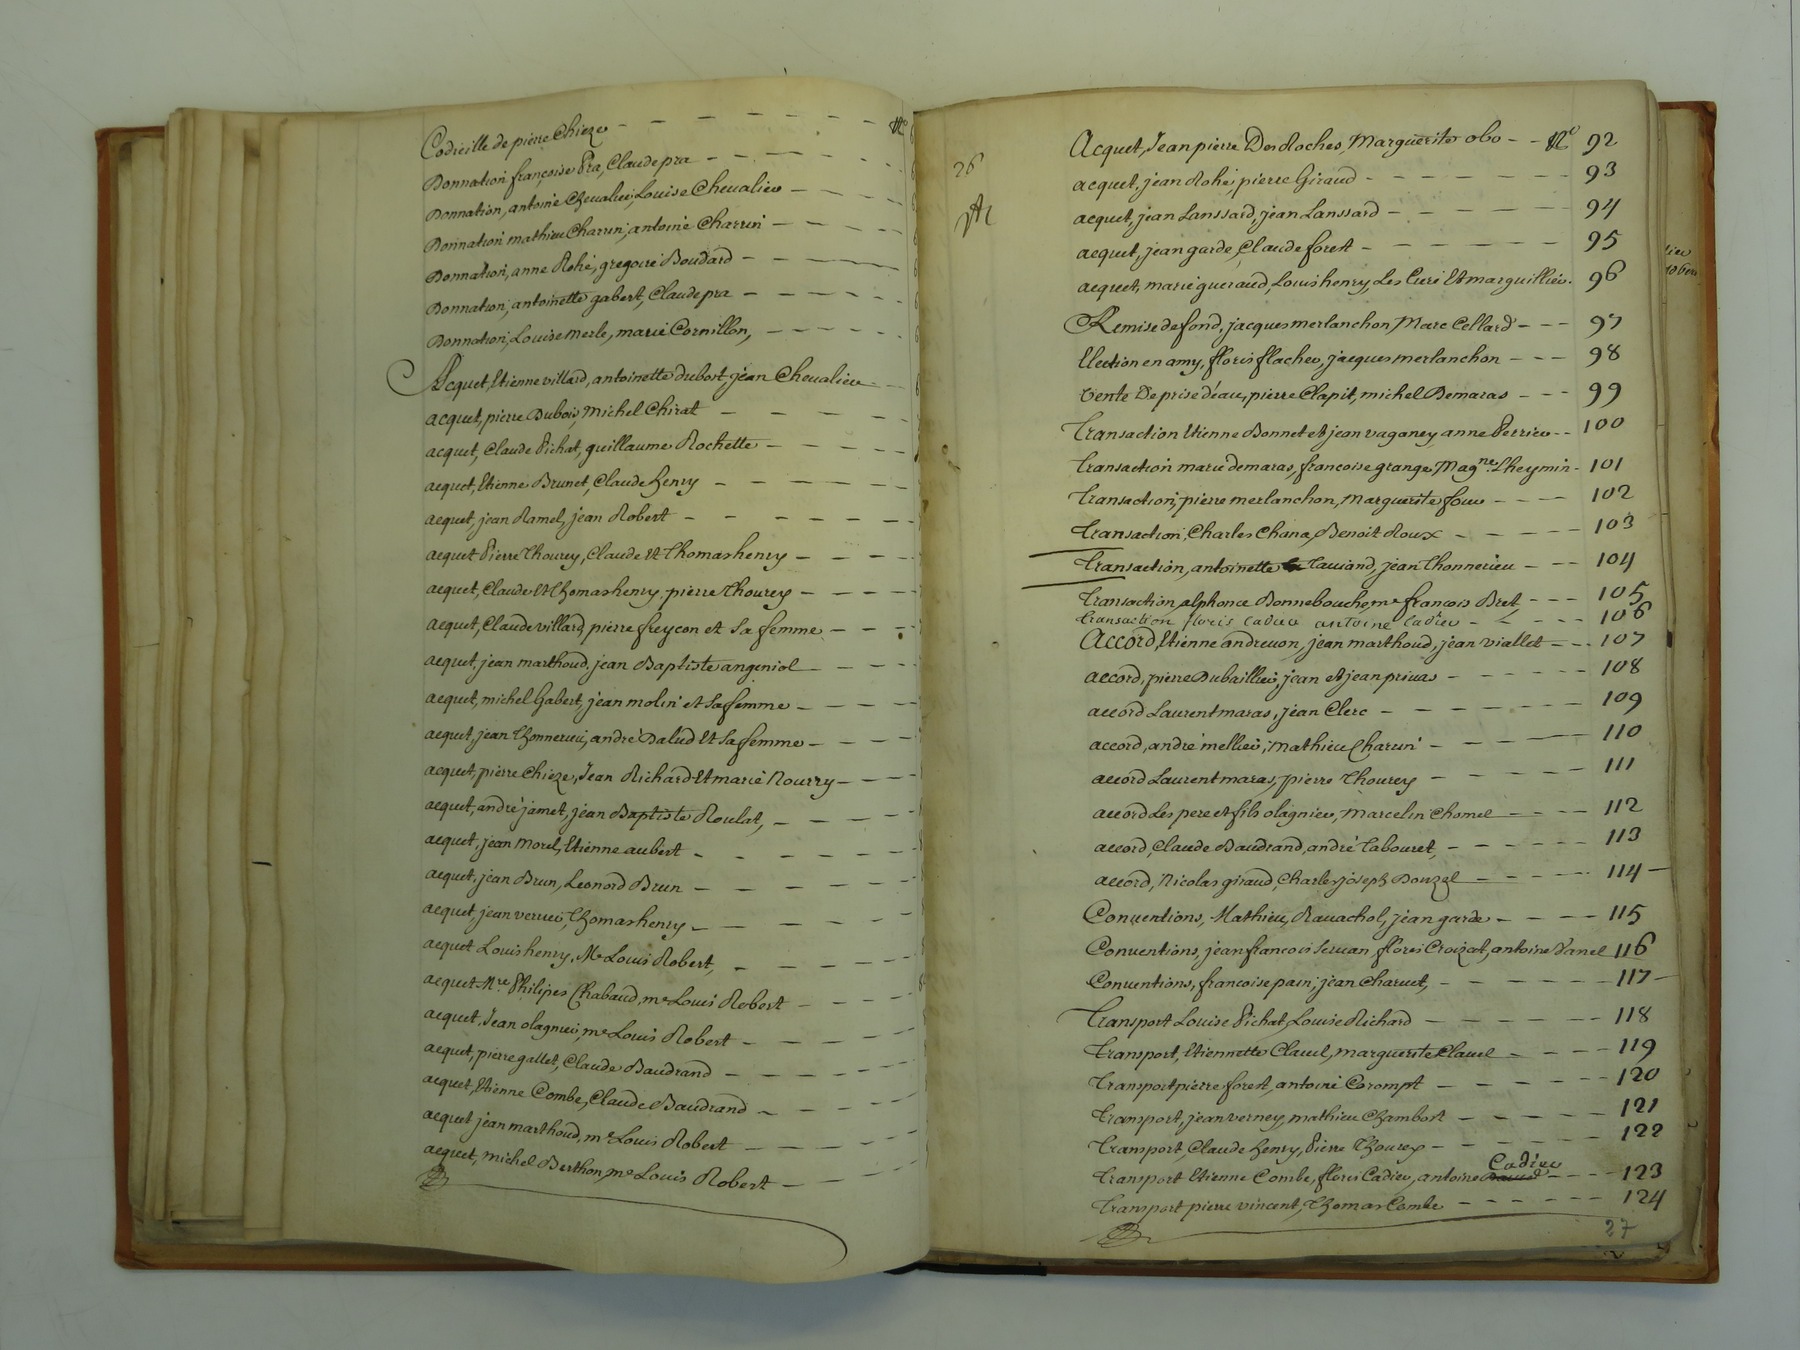 Codicille de pierre Chieze - - - - - - - - N.o
Donnation françoise Pra, Claude pra - - - - - -
Donnation, antoine Chevalier, Louise Chevalier - - - -
Donnation mathieu Charrin, antoine Charrin - - - -
Donnation, anne Rohé, gregoire Boudard - - - - -
Donnation, antoinette gabert, Claude pra - - - - -
Donnation, Louise merle, marie Cornillon, - - - - -
Acquet, Etienne villard, antoinette dubost jean Chevalier - -
acquet, pierre Dubois, Michel Chirat - - - - -
acquet, Claude Pichat, guillaume Rochette - - - - -
acquet, Etienne Brunet, Claude henry - - - - - -
acquet, jean Ramel, jean Robert - - - - - -
acquet Pierre Thourey, Claude Et Thomas henry - - - -
acquet, Claude Et Thomas henry, pierre Thourey - - - -
acquet, Claude villard, pierre freycon et Sa femme - - -
acquet, jean marthoud, jean Baptiste angeniol - - - -
acquet, michel Gabert, jean molin et Sa femme - - - -
acquet, jean Thonnerieu, andré Dalud Et Sa femme - - - -
acquet, pierre Chieze, Jean Richard Et marie Nourry - - -
acquet, andré jamet, jean Baptiste Roulat, - - - - -
acquet, jean Morel, Etienne aubert - - - - - -
acquet, jean Brun, Leonord Brun - - - - -
acquet, jean vernei, Thomas henry - - - - -
acquet Louis henry, Me Louis Robert, - - - - -
acquet Mre Philipes Chabaud, me Louis Robert - - - -
acquet, Jean olagnier, me Louis Robert - - - - -
acquet, pierre gallet, Claude Baudrand - - - - - -
acquet, Etienne Combe, Claude Baudrand - - - - -
acquet jean marthoud, me Louis Robert - - - - -
acquet, michel Berthon, me Louis Robert - - - -
26
Acquet, Jean pierre Des Roches, Marguerite obo - - N.o 92
acquet, jean Rohé, pierre Giraud - - - - - - - 93
acquet, jean Lanssard, jean Lanssard - - - - - - 94
acquet, jean garde, Claude forest - - - - - - 95
acquet, marie gueraud, Louis henry, Les Curé Et marguillier. 96
Remise de fond, jacques merlanchon, Marc Cellard - - - 97
Election en amy, floris flacher, jacques merlanchon - - - 98
Vente De prise d'eau, pierre Clapit, michel Demaras - - - 99
Transaction Etienne Bonnet et jean vaganey anne Perrier - - 100
Transaction marie demaras, francoise grange, Magne Lheymin - 101
Transaction, pierre merlanchon, Marguerite four - - - - 102
Transaction, Charles Chana, Benoit Roux - - - - - 103
Transaction, antoinette Tauiand, jean Thonnerieu - - - 104
Transaction, alphonce Bonnebouche, me francois Bret, - - - 105
Transaction floris Cadier antoine Cadier - - - - - 106
Accord, Etienne andrevon, jean marthoud, jean viallet - - - 107
accord, pierre Dubaillier, jean et jean privas - - - - - - 108
accord Laurent maras, jean Clerc - - - - - - - 109
accord, andré mellier, Mathieu Charin - - - - - 110
accord Laurent maras, pierre Thourey - - - - - 111
accord Les pere et fils olagnier, Marcelin Chomel - - - - 112
accord, Claude Baudrand, andré Tabouret, - - - - - - 113
accord, Nicolas giraud, Charles joseph Donzel - - - - - 114 -
Conventions, Mathieu, Ravachol, jean garde - - - - - 115
Conventions, jean francois Servan floris Croizat, antoine Vanel 116
Conventions, francoise pain, jean Charvet, - - - - - - 117 -
Transport Louise Pichat, Louise Richard - - - - - - 118
Transport, Etiennette Clavel, marguerite Clavel - - - - 119
Transport pierre forest, antoine Corompt - - - - - - 120
Transport, jean verney, mathieu Chambost - - - - - 121
Transport, Claude henry, Pierre Thourey - - - - - - - 122
Cadier
Transport Etienne Combe, floris Cadier, antoine - - - - 123
Transport pierre vincent, Thomas Combe - - - - - - 124
27